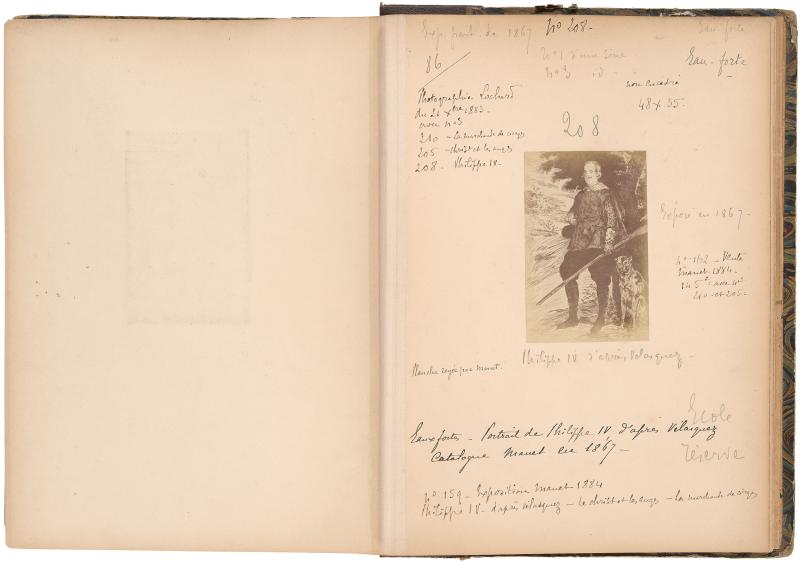 Exp. part. de 1867 No 208.
Eau-forte
86
No 1 d'une
No 3
Eau-forte
non encadré
48 x 35.
Photographie Lochard
du 21 Xbre 1883.
avec nos
210 - la marchande de cierges
205 - christ et les anges
208 - Philippe IV -
208
Exposé en 1867 -
No 162 - Vente
Manet 1884.
145 f. avec nos
210 et 205 -
Philippe IV d'après Velasquez -
Planche rayée par Manet.
Ecole
réserve
Eaux fortes - Portrait de Philippe IV d'après Vélasquez
Catalogue Manet en 1867 -
No 159 - Exposition Manet 1884
Philippe IV - d'après Vélasquez - le christ et les anges - la marchande de cierges